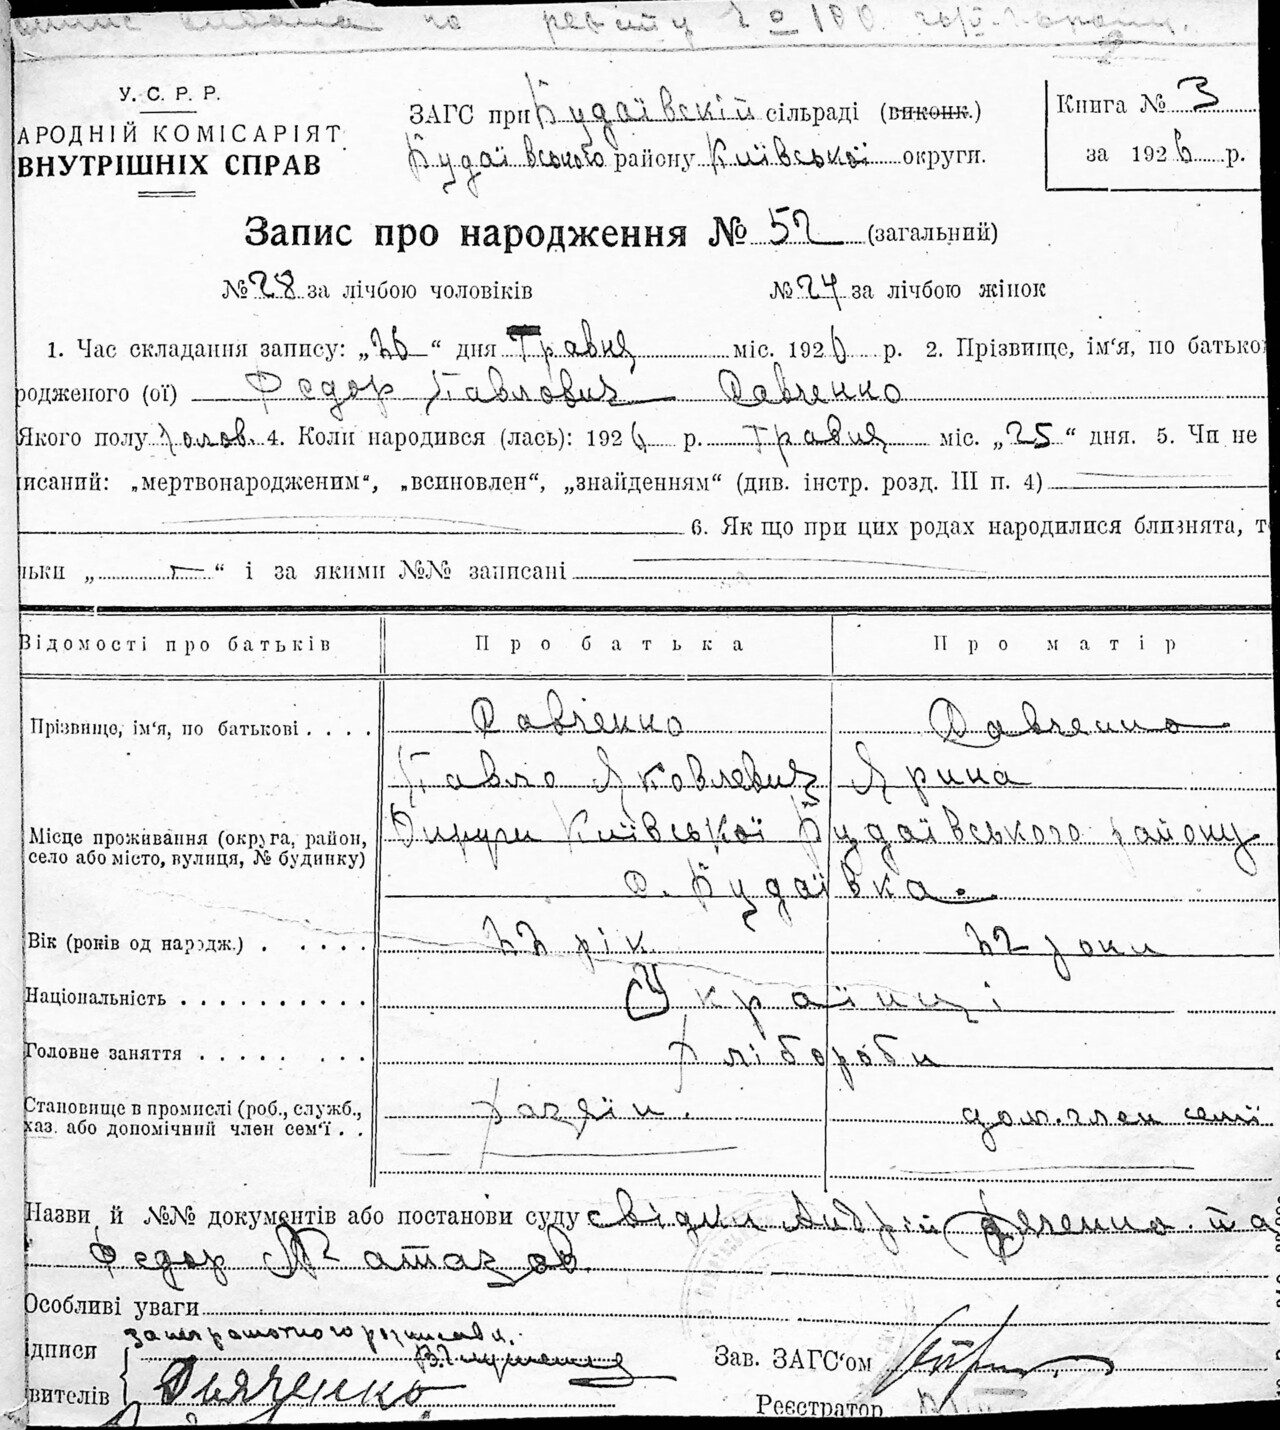 У. С. Р. Р.
АРОДНІЙ КОМІСАРІЯТ
ВНУТРІШНІХ СПРАВ
ЗАГС при Будаївскій сільраді (виконк.)
Будаївського району Київської округи.
Книга № 3
за 1926 р.
Запис про народження № 52 (загальний)
№ 28 за лічбою чоловіків № 24 за лічбою жінок
1. Час складання запису: „26“ дня Травня міс. 1926 р. 2. Прізвище, ім‘я, по батько
родженого (ої) Федор Павлович Савченко
Якого полу чолов. 4. Коли народився (лась): 1926 р. Травня міс. „25“ дня. 5. Чи не
писаний: „мертвонародженим“, „всиновлен“, „знайденням“ (див. інстр. розд. III п. 4)
6. Як що при цих родах народилися близнята, т
льки „ “ і за якими №№ записані
Відомості про батьків Про батька Про матір
Прізвище, ім‘я, по батькові Савченко Савченко
Павло Яковлевич Ярина
Місце проживання (округа, район, село або місто, вулиця, № будинку) Округи Київської Будаївського району
с. Будаївка.
Вік (років од народж.) 22 рік 22 роки
Національність Українці
Головне заняття Хлібороби
Становище в промислі (роб., служб., хаз. або допомічний член сем‘ї Хазяїн. дом. член семї
Назви й №№ документів або постанови суду свідки Андрій та
Федор
Особливі уваги
ідписи
за неграмотного розписався
Зав. ЗАГС‘ом
вителів Дьяченко
Реєстратор